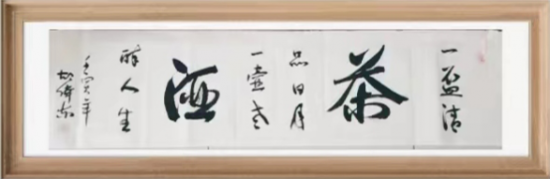 一盃清
茶
品日月
一壶老
酒
醉人生
壬寅年